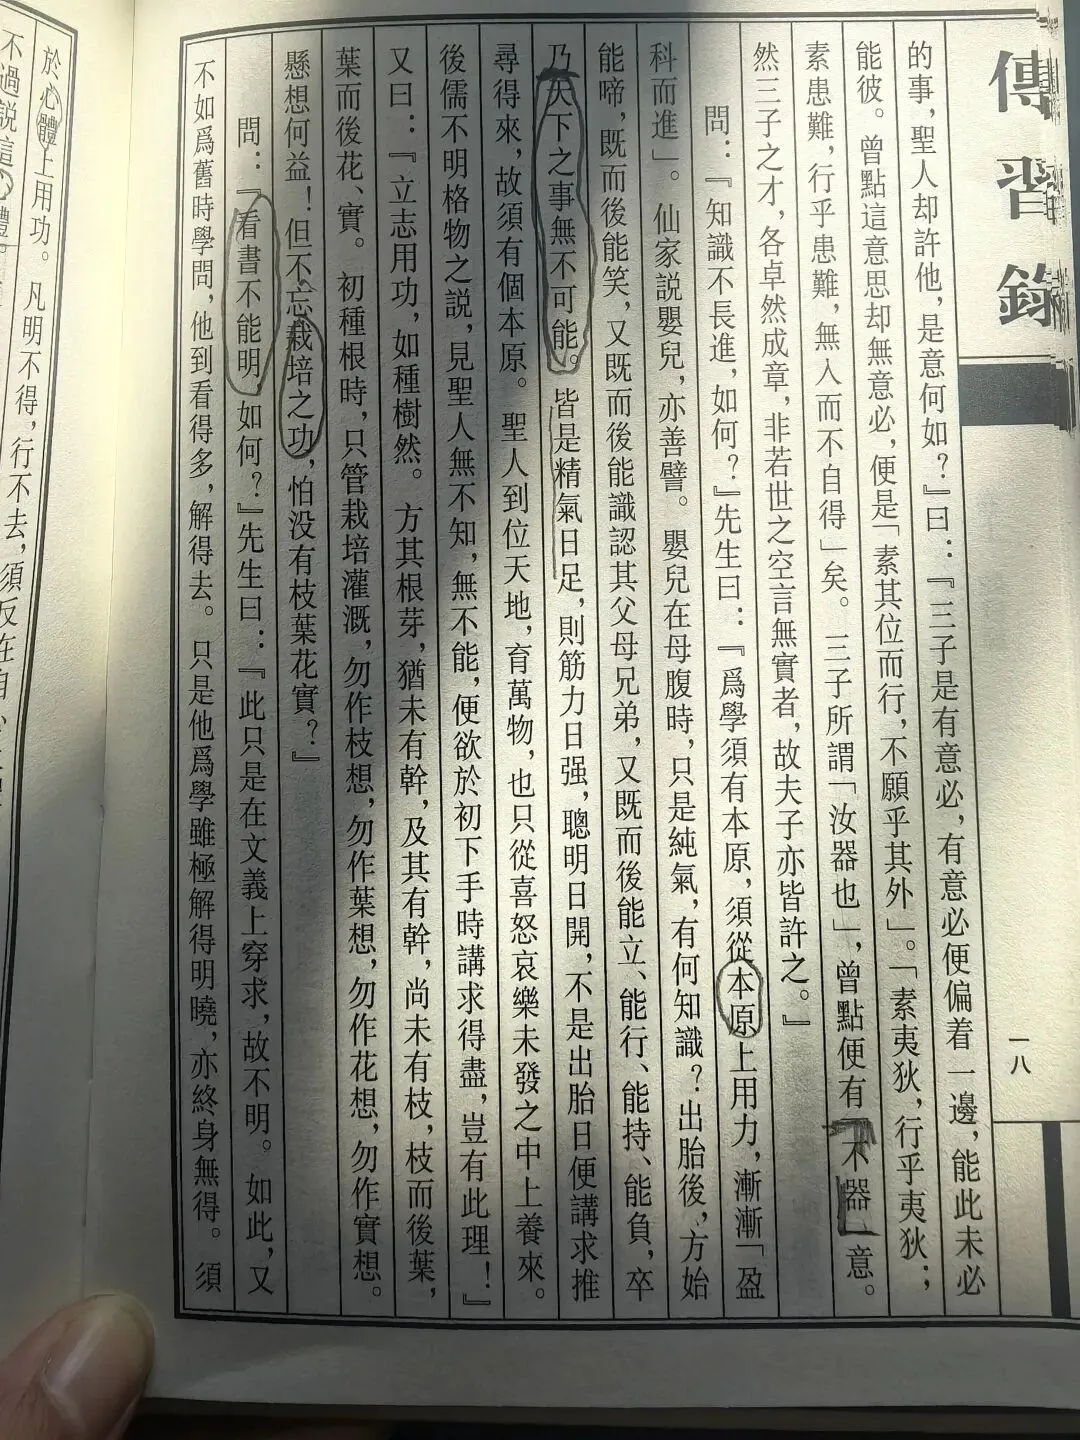 傳習錄
一八
的事，聖人却許他，是意何如？』曰：『三子是有意必，有意必便偏着一邊，能此未必
能彼。曾點這意思却無意必，便是「素其位而行，不願乎其外」。「素夷狄，行乎夷狄；
素患難，行乎患難，無入而不自得」矣。三子所謂「汝器也」，曾點便有「不器」意。
然三子之才，各卓然成章，非若世之空言無實者，故夫子亦皆許之。』
問：『知識不長進，如何？』先生曰：『爲學須有本原，須從本原上用力，漸漸「盈
科而進」。仙家説嬰兒，亦善譬。嬰兒在母腹時，只是純氣，有何知識？出胎後，方始
能啼，既而後能笑，又既而後能識認其父母兄弟，又既而後能立、能行、能持、能負，卒
乃天下之事無不可能。皆是精氣日足，則筋力日强，聰明日開，不是出胎日便講求推
尋得來，故須有個本原。聖人到位天地，育萬物，也只從喜怒哀樂未發之中上養來。
後儒不明格物之説，見聖人無不知，無不能，便欲於初下手時講求得盡，豈有此理！』
又曰：『立志用功，如種樹然。方其根芽，猶未有幹，及其有幹，尚未有枝，枝而後葉，
葉而後花、實。初種根時，只管栽培灌溉，勿作枝想，勿作葉想，勿作花想，勿作實想。
懸想何益！但不忘栽培之功，怕没有枝葉花實？』
問：『看書不能明，如何？』先生曰：『此只是在文義上穿求，故不明。如此，又
不如爲舊時學問，他到看得多，解得去。只是他爲學雖極解得明曉，亦終身無得。須
於心體上用功。凡明不得，行不去，須反在自
不過説這心體。